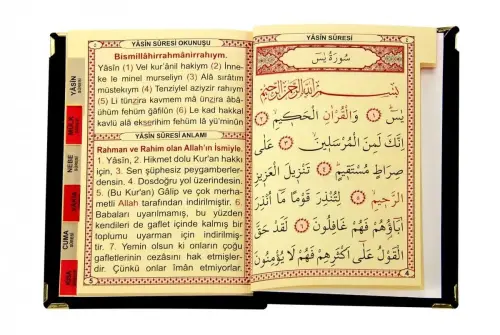 YÂSİN SÛRESİ OKUNUŞU
Bismillâhirrahmânirrahıym.
Yâsîn (1) Vel kur'ânil hakiym (2) İnne-
ke le minel murseliyn (3) Alâ sırâtım
müstekıym (4) Tenziylel aziyzir rahıym
(5) Li tünzira kavmem mâ ünzira âbâ-
ühüm fehüm gâfilûn (6) Le kad hakkal
kavlü alâ ekserihim fehüm lâ yü'minûn
YÂSİN SÛRESİ ANLAMI
Rahman ve Rahim olan Allah'ın İsmiyle.
1. Yâsîn, 2. Hikmet dolu Kur'an hakkı
için, 3. Sen şüphesiz peygamberler-
densin. 4. Dosdoğru yol üzerindesin.
5. (Bu Kur'an) Gâlip ve çok merha-
metli Allah tarafından indirilmiştir. 6.
Babaları uyarılmamış, bu yüzden
kendileri de gaflet içinde kalmış bir
toplumu uyarman için indirilmiş-
tir. 7. Yemin olsun ki onların çoğu
gafletlerinin cezasını hak etmişler-
dir. Çünkü onlar îmân etmiyorlar.
YÂSİN
MÜLK
NEBE
CUMA
YÂSİN SÛRESİ
سُورَةُ يٰسٓ
بِسْمِ اللهِ الرَّحْمٰنِ الرَّحِيمِ
يٰسٓ ﴿١﴾ وَالْقُرْاٰنِ الْحَكِيمِ ﴿٢﴾
اِنَّكَ لَمِنَ الْمُرْسَلِينَ ﴿٣﴾ عَلٰى
صِرَاطٍ مُسْتَقِيمٍ ﴿٤﴾ تَنْزِيلَ الْعَزِيزِ
الرَّحِيمِ ﴿٥﴾ لِتُنْذِرَ قَوْمًا مَٓا اُنْذِرَ
اٰبَٓاؤُ۬هُمْ فَهُمْ غَافِلُونَ ﴿٦﴾ لَقَدْ حَقَّ
الْقَوْلُ عَلٰٓى اَكْثَرِهِمْ فَهُمْ لَا يُؤْمِنُونَ
4